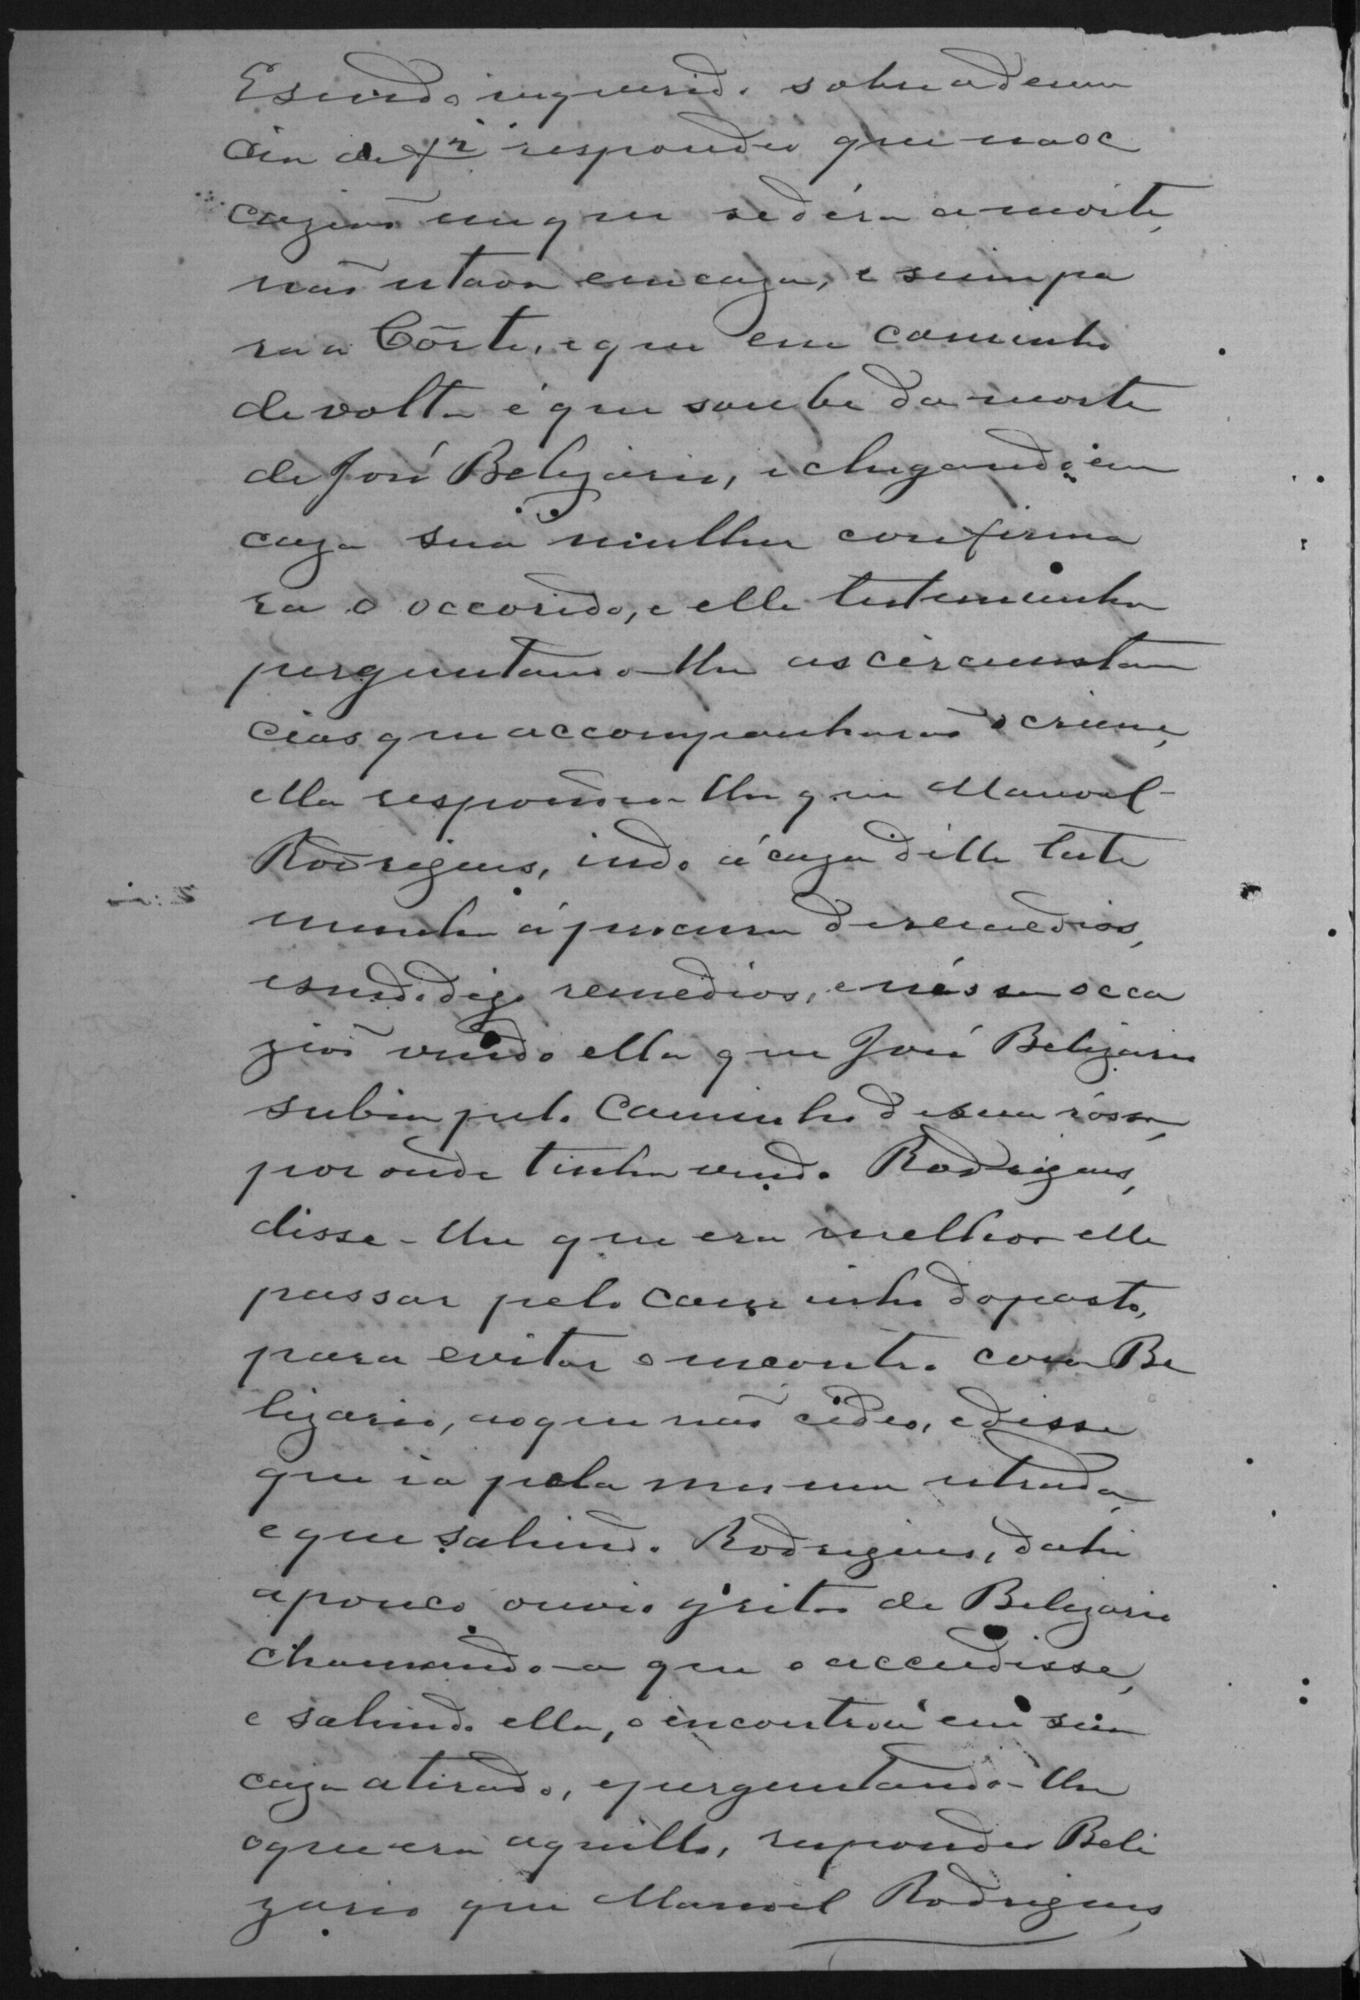 E sendo inquerido sobre a denun
cia de f. 2 respondeo que na oc
cazião em que se déra a morte,
não estava em caza, e sim pa
ra a Côrte, e que em caminho
de volta é que soube da morte
de José Belizario, e chegando em
caza sua mulher confirma
ra o occorido, e elle testemunha
perguntando-lhe as circunstan
cias que accompanharão o crime,
ella respondeu-lhe que Manoel
Rodrigues, indo á caza d'elle teste
munha á procura de remedios,
isundo digo remedios, e néssa occa
zião vendo ella que José Belizario
subia pelo caminho de sua róssa,
por onde tinha vindo Rodrigues,
disse-lhe que era melhor elle
passar pelo caminho do pasto,
para evitar o encontro com Be
lizario, ao que não cedeo, e disse
que ia pela mesma estrada,
e que sahindo Rodrigues, dahi
a pouco ouvio gritos de Belizario
chamando-a que o accudisse,
e sahindo ella, o encontrou em sua
caza atirado, e perguntando-lhe
o que era aquillo, respondeo Beli
zario que Manoel Rodrigues,